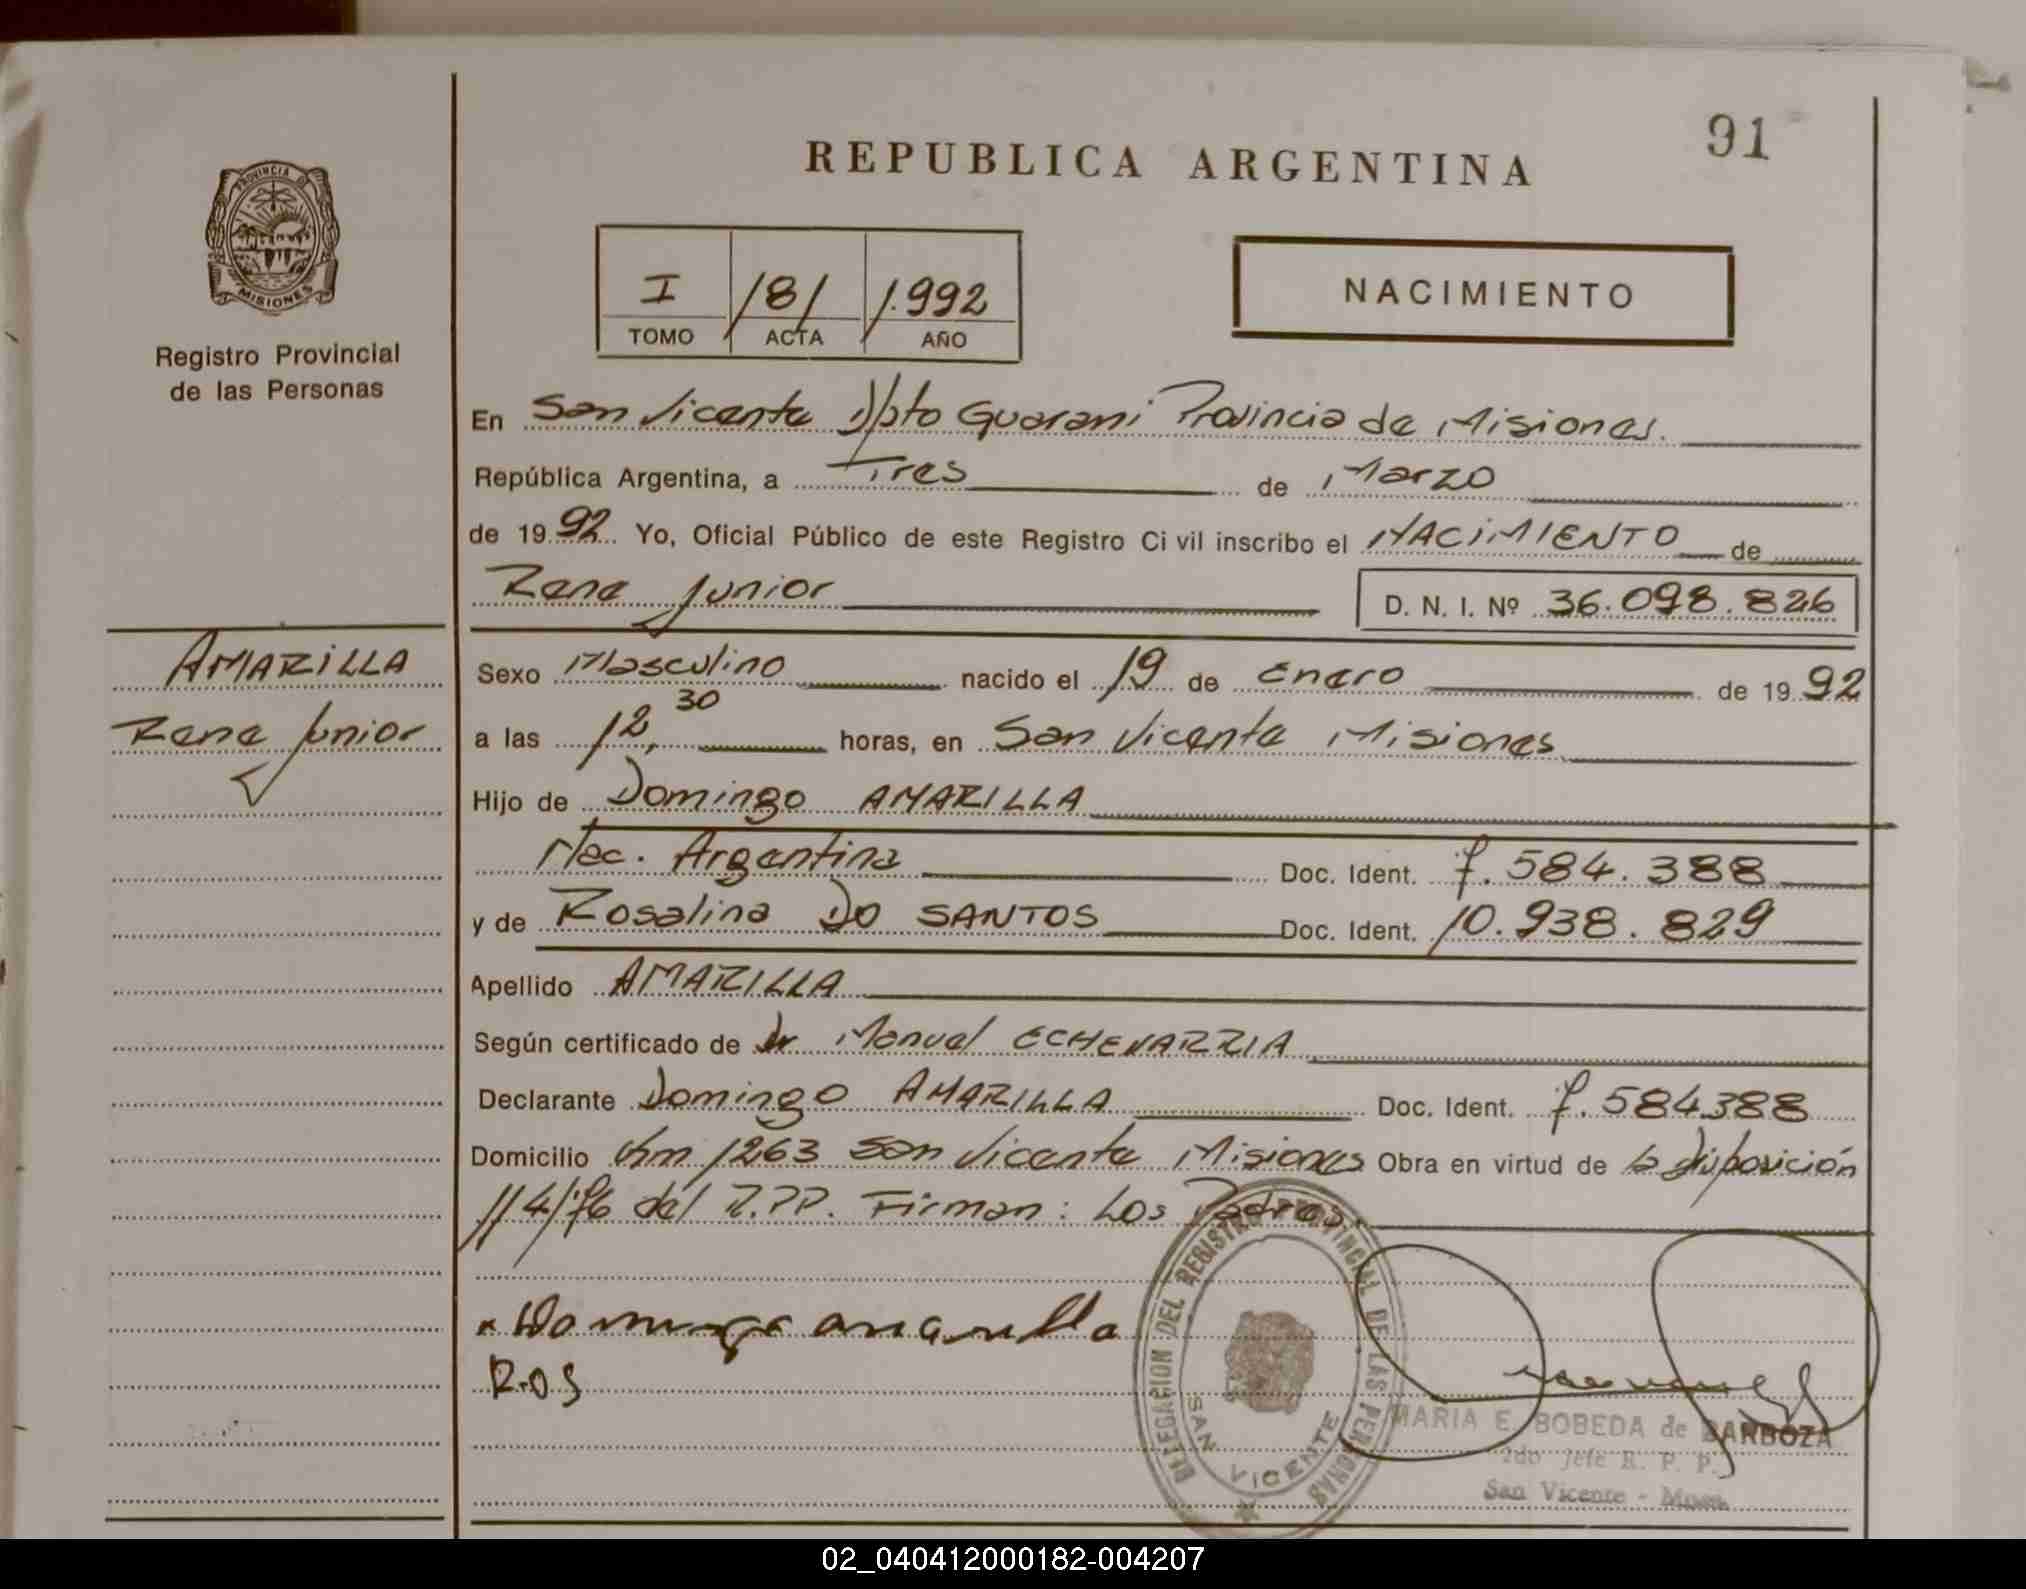 91
REPUBLICA ARGENTINA
PROVINCIA DE
MISIONES
Registro Provincial
de las Personas
I 181 1.992
TOMO ACTA AÑO
NACIMIENTO
En San Vicente Dpto Guarani Provincia de Misiones.
República Argentina, a Tres de Marzo
de 1992 Yo, Oficial Público de este Registro Civil inscribo el NACIMIENTO de
Rene Junior D. N. I. Nº 36.098.826
AMARILLA
Rene Junior
Sexo Masculino nacido el 19 de Enero de 1992
a las 12,30 horas, en San Vicente Misiones
Hijo de Domingo AMARILLA
Nac. Argentina Doc. Ident. 7.584.388
y de Rosalina DO SANTOS Doc. Ident. 10.938.829
Apellido AMARILLA
Según certificado de Dr Manuel ECHEVARRIA
Declarante Domingo AMARILLA Doc. Ident. 7.584388
Domicilio Km 1263 San Vicente Misiones Obra en virtud de la disposición
114/76 del R.PP. Firman: Los Padres.
Domingo amarilla
R.O S
DELEGACION DEL REGISTRO PROVINCIAL DE LAS PERSONAS
SAN VICENTE
MARIA E. BOBEDA de BARBOZA
2do Jefe R. P. P.
San Vicente - Mnes.
02_040412000182-004207